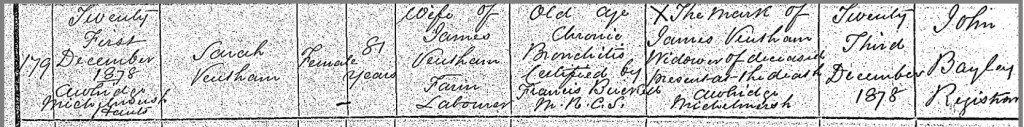 179
Twenty
First
December
1878
Awbridge
Michelmersh
Hants
Sarah
Ventham
Female
81
Years
Wife of
James
Ventham
Farm
Labourer
Old age
Chronic
Bronchitis
Certified by
Francis Buckell
M.R.C.S.
X The mark of
James Ventham
Widower of deceased
Present at the death
Awbridge
Michelmersh
Twenty
Third
December
1878
John
Bayley
Registrar